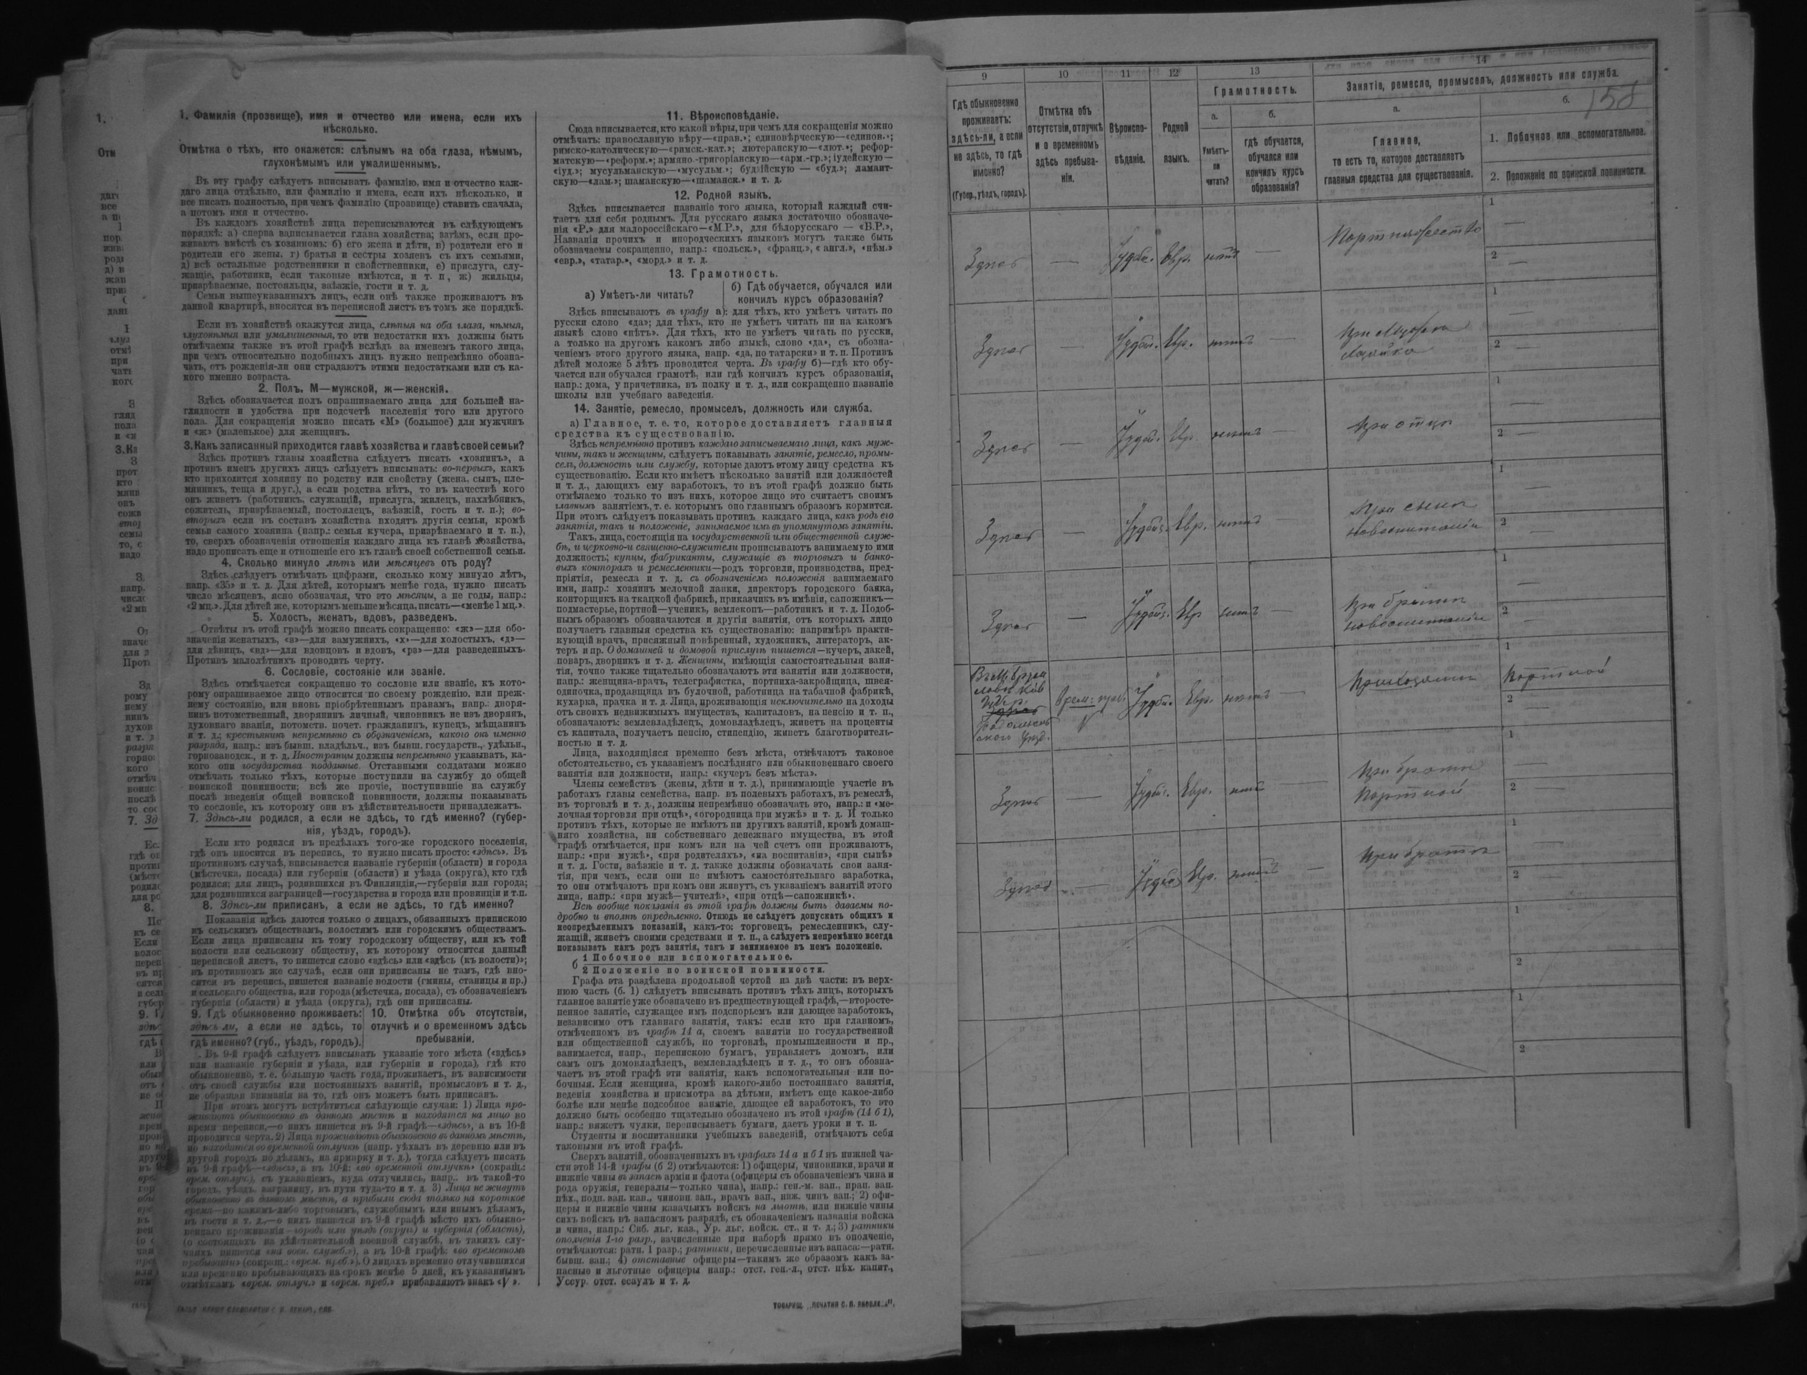 1. Фамилія (прозвище), имя и отчество или имена, если ихъ
нѣсколько.
Отмѣтка о тѣхъ, кто окажется: слѣпымъ на оба глаза, нѣмымъ,
глухонѣмымъ или умалишеннымъ.
Въ эту графу слѣдуетъ вписывать фамилію, имя и отчество каж-
даго лица отдѣльно, или фамилію и имена, если ихъ нѣсколько, и
все писать полностью, при чемъ фамилію (прозвище) ставить сначала,
а потомъ имя и отчество.
Въ каждомъ хозяйствѣ лица переписываются въ слѣдующемъ
порядкѣ: а) сперва записывается глава хозяйства; затѣмъ, если про-
живаютъ вмѣстѣ съ хозяиномъ: б) его жена и дѣти, в) родители его и
родители его жены, г) братья и сестры хозяевъ съ ихъ семьями,
д) всѣ остальные родственники и свойственники, е) прислуга, слу-
жащіе, работники, если таковые имѣются, и т. п., ж) жильцы,
призрѣваемые, постояльцы, заѣзжіе, гости и т. д.
Семьи вышеуказанныхъ лицъ, если онѣ также проживаютъ въ
данной квартирѣ, вносятся въ переписной листъ въ томъ же порядкѣ.
Если въ хозяйствѣ окажутся лица, слѣпыя на оба глаза, нѣмыя,
глухонѣмыя или умалишенныя, то эти недостатки ихъ должны быть
отмѣчаемы также въ этой графѣ вслѣдъ за именемъ такого лица,
при чемъ относительно подобныхъ лицъ нужно непремѣнно обозна-
чать, отъ рожденія-ли они страдаютъ этими недостатками или съ ка-
кого именно возраста.
2. Полъ. М—мужской, ж—женскій.
Здѣсь обозначается полъ опрашиваемаго лица для большей на-
глядности и удобства при подсчетѣ населенія того или другого
пола. Для сокращенія можно писать «М» (большое) для мужчинъ
и «ж» (маленькое) для женщинъ.
3. Какъ записанный приходится главѣ хозяйства и главѣ своей семьи?
Здѣсь противъ главы хозяйства слѣдуетъ писать «хозяинъ», а
противъ именъ другихъ лицъ слѣдуетъ вписывать: во-первыхъ, какъ
кто приходится хозяину по родству или свойству (жена, сынъ, пле-
мянникъ, теща и друг.), а если родства нѣтъ, то въ качествѣ кого
онъ живетъ (работникъ, служащій, прислуга, жилецъ, нахлѣбникъ,
сожитель, призрѣваемый, постоялецъ, заѣзжій, гость и т. п.); во-
вторыхъ если въ составъ хозяйства входятъ другія семьи, кромѣ
семьи самого хозяина (напр.: семья кучера, призрѣваемаго и т. п.),
то, сверхъ обозначенія отношенія каждаго лица къ главѣ хозяйства,
надо прописать еще и отношеніе его къ главѣ своей собственной семьи.
4. Сколько минуло лѣтъ или мѣсяцевъ отъ роду?
Здѣсь слѣдуетъ отмѣчать цифрами, сколько кому минуло лѣтъ,
напр. «35» и т. д. Для дѣтей, которымъ менѣе года, нужно писать
число мѣсяцевъ, ясно обозначая, что это мѣсяцы, а не годы, напр.:
«2 мц.». Для дѣтей же, которымъ меньше мѣсяца, писать—«менѣе 1 мц.».
5. Холостъ, женатъ, вдовъ, разведенъ.
Отвѣты въ этой графѣ можно писать сокращенно: «ж»—для обо-
значенія женатыхъ, «з»—для замужнихъ, «х»—для холостыхъ, «д»—
для дѣвицъ, «вд»—для вдовцовъ и вдовъ, «рз»—для разведенныхъ.
Противъ малолѣтнихъ проводить черту.
6. Сословіе, состояніе или званіе.
Здѣсь отмѣчается сокращенно то сословіе или званіе, къ кото-
рому опрашиваемое лицо относится по своему рожденію, или преж-
нему состоянію, или вновь пріобрѣтеннымъ правамъ, напр.: дворя-
нинъ потомственный, дворянинъ личный, чиновникъ не изъ дворянъ,
духовнаго званія, потомств. почет. гражданинъ, купецъ, мѣщанинъ
и т. д.; крестьянинъ непремѣнно съ обозначеніемъ, какого онъ именно
разряда, напр.: изъ бывш. владѣльч., изъ бывш. государств., удѣльн.,
горнозаводск., и т. д. Иностранцы должны непремѣнно указывать, ка-
кого они государства подданные. Отставными солдатами можно
отмѣчать только тѣхъ, которые поступили на службу до общей
воинской повинности; всѣ же прочіе, поступившіе на службу
послѣ введенія общей воинской повинности, должны показывать
то сословіе, къ которому они въ дѣйствительности принадлежатъ.
7. Здѣсь-ли родился, а если не здѣсь, то гдѣ именно? (губер-
нія, уѣздъ, городъ).
Если кто родился въ предѣлахъ того-же городского поселенія,
гдѣ онъ вносится въ перепись, то нужно писать просто: «здѣсь». Въ
противномъ случаѣ, вписывается названіе губерніи (области) и города
(мѣстечка, посада) или губерніи (области) и уѣзда (округа), кто гдѣ
родился; для лицъ, родившихся въ Финляндіи,—губерніи или города;
для родившихся заграницей—государства и города или провинціи и т.п.
8. Здѣсь-ли приписанъ, а если не здѣсь, то гдѣ именно?
Показанія здѣсь даются только о лицахъ, обязанныхъ припискою
къ сельскимъ обществамъ, волостямъ или городскимъ обществамъ.
Если лица приписаны къ тому городскому обществу, или къ той
волости или сельскому обществу, къ которому относится данный
переписной листъ, то пишется слово «здѣсь» или «здѣсь (къ волости)»;
въ противномъ же случаѣ, если они приписаны не тамъ, гдѣ вно-
сятся въ перепись, пишется названіе волости (гмины, станицы и пр.)
и сельскаго общества, или города (мѣстечка, посада), съ обозначеніемъ
губерніи (области) и уѣзда (округа), гдѣ они приписаны.
9. Гдѣ обыкновенно проживаетъ:
здѣсь-ли, а если не здѣсь, то
гдѣ именно? (губ., уѣздъ, городъ).
10. Отмѣтка объ отсутствіи,
отлучкѣ и о временномъ здѣсь
пребываніи.
Въ 9-й графѣ слѣдуетъ вписывать указаніе того мѣста («здѣсь»
или названіе губерніи и уѣзда, или губерніи и города), гдѣ кто
обыкновенно, т. е. большую часть года, проживаетъ, въ зависимости
отъ своей службы или постоянныхъ занятій, промысловъ и т. д.,
не обращая вниманія на то, гдѣ онъ можетъ быть приписанъ.
При этомъ могутъ встрѣтиться слѣдующіе случаи: 1) Лица про-
живаютъ обыкновенно въ данномъ мѣстѣ и находятся на лицо во
время переписи,—о нихъ пишется въ 9-й графѣ—«здѣсь», а въ 10-й
проводится черта. 2) Лица проживаютъ обыкновенно въ данномъ мѣстѣ,
но находятся во временной отлучкѣ (напр. уѣхалъ въ деревню или въ
другой городъ по дѣламъ, на ярмарку и т. д.), тогда слѣдуетъ писать
въ 9-й графѣ—«здѣсь», а въ 10-й: «во временной отлучкѣ» (сокращ.:
врем. отлуч.), съ указаніемъ, куда отлучились, напр.: въ такой-то
городъ, уѣздъ, заграницу, въ пути туда-то и т. д. 3) Лица не живутъ
обыкновенно въ данномъ мѣстѣ, а прибыли сюда только на короткое
время—по какимъ-либо торговымъ, служебнымъ или инымъ дѣламъ,
въ гости и т. д.,—о нихъ пишется въ 9-й графѣ мѣсто ихъ обыкно-
веннаго проживанія—городъ или уѣздъ (округъ) и губернія (область),
(о состоящихъ на дѣйствительной военной службѣ, въ такихъ слу-
чаяхъ пишется «на воен. службѣ»), а въ 10-й графѣ: «во временномъ
пребываніи» (сокращ.: «врем. преб.»). О лицахъ временно отлучившихся
или временно пребывающихъ на срокъ менѣе 5 дней, къ указаннымъ
отмѣткамъ «врем. отлуч.» и «врем. преб.» прибавляютъ знакъ «V».
11. Вѣроисповѣданіе.
Сюда вписывается, кто какой вѣры, при чемъ для сокращенія можно
отмѣчать: православную вѣру—«прав.»; единовѣрческую—«единов.»;
римско-католическую—«римск.-кат.»; лютеранскую—«лют.»; рефор-
матскую—«реформ.»; армяно-григоріанскую—«арм.-гр.»; іудейскую—
«іуд.»; мусульманскую—«мусульм.»; буддійскую — «буд.»; ламаит-
скую—«лам.»; шаманскую—«шаманск.» и т. д.
12. Родной языкъ.
Здѣсь вписывается названіе того языка, который каждый счи-
таетъ для себя роднымъ. Для русскаго языка достаточно обозначе-
нія «Р.» для малороссійскаго—«М.Р.», для бѣлорусскаго — «Б.Р.»,
Названія прочихъ и инородческихъ языковъ могутъ также быть
обозначаемы сокращенно, напр.: «польск.», «франц.», «англ.», «нѣм.»
«евр.», «татар.», «морд.» и т. д.
13. Грамотность.
а) Умѣетъ-ли читать?
б) Гдѣ обучается, обучался или
кончилъ курсъ образованія?
Здѣсь вписываютъ въ графу а): для тѣхъ, кто умѣетъ читать по
русски слово «да»; для тѣхъ, кто не умѣетъ читать ни на какомъ
языкѣ слово «нѣтъ». Для тѣхъ, кто не умѣетъ читать по русски,
а только на другомъ какомъ либо языкѣ, слово «да», съ обозна-
ченіемъ этого другого языка, напр. «да, по татарски» и т. п. Противъ
дѣтей моложе 5 лѣтъ проводится черта. Въ графу б)—гдѣ кто обу-
чается или обучался грамотѣ, или гдѣ кончилъ курсъ образованія,
напр.: дома, у причетника, въ полку и т. д., или сокращенно названіе
школы или учебнаго заведенія.
14. Занятіе, ремесло, промыселъ, должность или служба.
а) Главное, т. е. то, которое доставляетъ главныя
средства къ существованію.
Здѣсь непремѣнно противъ каждаго записываемаго лица, какъ муж-
чины, такъ и женщины, слѣдуетъ показывать занятіе, ремесло, промы-
селъ, должность или службу, которые даютъ этому лицу средства къ
существованію. Если кто имѣетъ нѣсколько занятій или должностей
и т. д., дающихъ ему заработокъ, то въ этой графѣ должно быть
отмѣчаемо только то изъ нихъ, которое лицо это считаетъ своимъ
главнымъ занятіемъ, т. е. которымъ оно главнымъ образомъ кормится.
При этомъ слѣдуетъ показывать противъ каждаго лица, какъ родъ его
занятія, такъ и положеніе, занимаемое имъ въ упомянутомъ занятіи.
Такъ, лица, состоящія на государственной или общественной служ-
бѣ, и церковно- и священно-служители прописываютъ занимаемую ими
должность; купцы, фабриканты, служащіе въ торговыхъ и банко-
выхъ конторахъ и ремесленники—родъ торговли, производства, пред-
пріятія, ремесла и т. д. съ обозначеніемъ положенія занимаемаго
ими, напр.: хозяинъ мелочной лавки, директоръ городского банка,
конторщикъ на ткацкой фабрикѣ, приказчикъ въ имѣніи, сапожникъ—
подмастерье, портной—ученикъ, землекопъ—работникъ и т. д. Подоб-
нымъ образомъ обозначаются и другія занятія, отъ которыхъ лицо
получаетъ главныя средства къ существованію: напримѣръ практи-
кующій врачъ, присяжный повѣренный, художникъ, литераторъ, ак-
теръ и пр. О домашней и домовой прислугѣ пишется—кучеръ, лакей,
поваръ, дворникъ и т. д. Женщины, имѣющія самостоятельныя заня-
тія, точно также тщательно обозначаютъ эти занятія или должности,
напр.: женщина-врачъ, телеграфистка, портниха-закройщица, швея-
одиночка, продавщица въ булочной, работница на табачной фабрикѣ,
кухарка, прачка и т. д. Лица, проживающія исключительно на доходы
отъ своихъ недвижимыхъ имуществъ, капиталовъ, на пенсію и т. п.,
обозначаютъ: землевладѣлецъ, домовладѣлецъ, живетъ на проценты
съ капитала, получаетъ пенсію, стипендію, живетъ благотворитель-
ностью и т. д.
Лица, находящіяся временно безъ мѣста, отмѣчаютъ таковое
обстоятельство, съ указаніемъ послѣдняго или обыкновеннаго своего
занятія или должности, напр.: «кучеръ безъ мѣста».
Члены семействъ (жены, дѣти и т. д.), принимающіе участіе въ
работахъ главы семейства, напр. въ полевыхъ работахъ, въ ремеслѣ,
въ торговлѣ и т. д., должны непремѣнно обозначать это, напр.: и «мо-
лочная торговля при отцѣ», «огородница при мужѣ» и т. д. И только
противъ тѣхъ, которые не имѣютъ ни другихъ занятій, кромѣ домаш-
няго хозяйства, ни собственнаго денежнаго имущества, въ этой
графѣ отмѣчается, при комъ или на чей счетъ они проживаютъ,
напр.: «при мужѣ», «при родителяхъ», «на воспитаніи», «при сынѣ»
и т. д. Гости, заѣзжіе и т. д. также должны обозначать свои заня-
тія, при чемъ, если они не имѣютъ самостоятельнаго заработка,
то они отмѣчаютъ при комъ они живутъ, съ указаніемъ занятій этого
лица, напр.: «при мужѣ—учителѣ», «при отцѣ—сапожникѣ».
Всѣ вообще показанія въ этой графѣ должны быть даваемы по-
дробно и вполнѣ опредѣленно. Отнюдь не слѣдуетъ допускать общихъ и
неопредѣленныхъ показаній, какъ-то: торговецъ, ремесленникъ, слу-
жащій, живетъ своими средствами и т. п., а слѣдуетъ непремѣнно всегда
показывать какъ родъ занятія, такъ и занимаемое въ немъ положеніе.
б
1 Побочное или вспомогательное.
2 Положеніе по воинской повинности.
Графа эта раздѣлена продольной чертой на двѣ части: въ верх-
нюю часть (б. 1) слѣдуетъ вписывать противъ тѣхъ лицъ, которыхъ
главное занятіе уже обозначено въ предшествующей графѣ,—второсте-
пенное занятіе, служащее имъ подспорьемъ или дающее заработокъ,
независимо отъ главнаго занятія, такъ: если кто при главномъ,
отмѣченномъ въ графѣ 14 а, своемъ занятіи по государственной
или общественной службѣ, по торговлѣ, промышленности и пр.,
занимается, напр., перепискою бумагъ, управляетъ домомъ, или
самъ онъ домовладѣлецъ, землевладѣлецъ и т. д., то онъ обозна-
чаетъ въ этой графѣ эти занятія, какъ вспомогательныя или по-
бочныя. Если женщина, кромѣ какого-либо постояннаго занятія,
веденія хозяйства и присмотра за дѣтьми, имѣетъ еще какое-либо
болѣе или менѣе подсобное занятіе, дающее ей заработокъ, то это
должно быть особенно тщательно обозначено въ этой графѣ (14 б 1),
напр.: вяжетъ чулки, переписываетъ бумаги, даетъ уроки и т. п.
Студенты и воспитанники учебныхъ заведеній, отмѣчаютъ себя
таковыми въ этой графѣ.
Сверхъ занятій, обозначенныхъ въ графахъ 14 а и б 1 въ нижней ча-
сти этой 14-й графы (б 2) отмѣчаются: 1) офицеры, чиновники, врачи и
нижніе чины въ запасѣ арміи и флота (офицеры съ обозначеніемъ чина и
рода оружія, генералы—только чина), напр.: ген.-м. зап., прап. зап.
пѣх., подп. зап. кав., чиновн. зап., врачъ зап., ниж. чинъ зап.; 2) офи-
церы и нижніе чины казачьихъ войскъ на льготѣ, или нижніе чины
сихъ войскъ въ запасномъ разрядѣ, съ обозначеніемъ названія войска
и чина, напр.: Сиб. льг. каз., Ур. льг. войск. ст. и т. д.; 3) ратники
ополченія 1-го разр., зачисленные при наборѣ прямо въ ополченіе,
отмѣчаются: ратн. 1 разр.; ратники, перечисленные изъ запаса:—ратн.
бывш. зап.; 4) отставные офицеры—такимъ же образомъ какъ за-
пасные и льготные офицеры напр.: отст. ген.-л., отст. пѣх. капит.,
Уссур. отст. есаулъ и т. д.
9 10 11 12 13 14
Гдѣ обыкновенно
проживаетъ:
здѣсь-ли, а если
не здѣсь, то гдѣ
именно?
(Губер., уѣздъ, городъ).
Отмѣтка объ
отсутствіи, отлучкѣ
и о временномъ
здѣсь пребыва-
ніи.
Вѣроиспо-
вѣданіе.
Родной
языкъ.
Грамотность.
а.
Умѣетъ-
ли
читать?
б.
гдѣ обучается,
обучался или
кончилъ курсъ
образованія?
Занятіе, ремесло, промыселъ, должность или служба.
158
а.
Главное,
то есть то, которое доставляетъ
главныя средства для существованія.
б.
1. Побочное или вспомогательное.
2. Положеніе по воинской повинности.
Здѣсь — Іудейс. Евр. нѣтъ —
1 —
2 —
Здѣсь — Іудейс. Евр. нѣтъ —
1 —
2 —
Здѣсь — Іудейс. Евр. нѣтъ — При отцѣ
1 —
2 —
Здѣсь — Іудейс. Евр. нѣтъ — При сынѣ
1 —
2 —
Здѣсь — Іудейс. Евр. нѣтъ — При братѣ
1 —
2 —
Врем. преб. V Іудейс. Евр. нѣтъ —
1 Портной
2 —
Здѣсь — Іудейс. Евр. нѣтъ — При братѣ
Портной
1 —
2 —
Здѣсь — Іудейс. Евр. нѣтъ — При братѣ
1 —
2 —
1
2
1
2